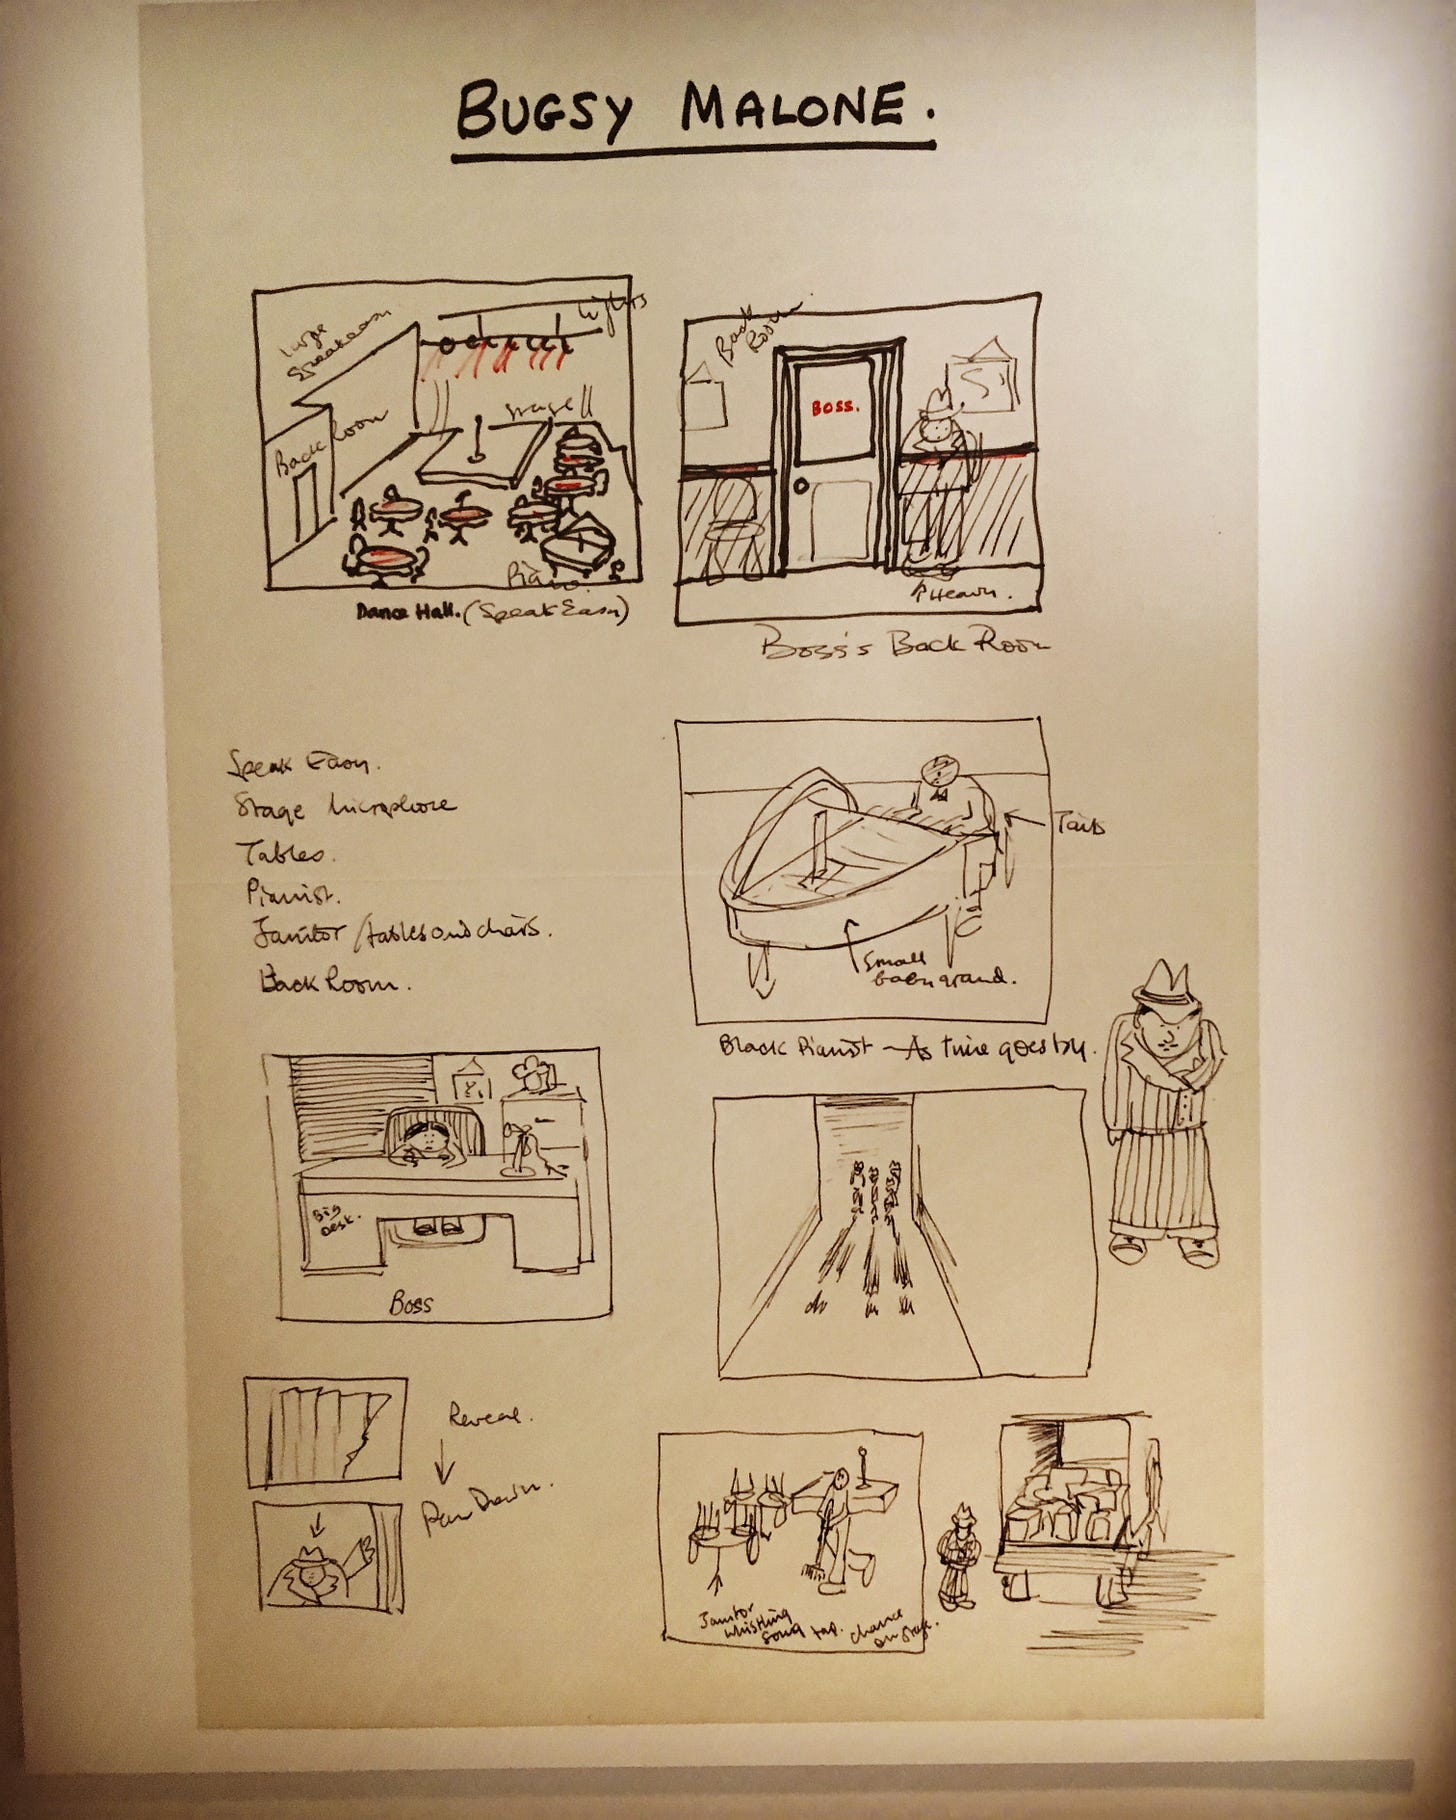 BUGSY MALONE.
Large
Speakeasy
Lights
Back Room
Stage
Piano
Dance Hall. (Speak Easy)
Back
Room
BOSS.
Heavy.
Boss's Back Room
Speak Easy.
Stage Microphone
Tables.
Pianist.
Janitor / tables and chairs.
Back Room.
Tails
Small
baby grand.
Black Pianist – As time goes by.
Big
Desk.
Boss
Reveal.
Pan Down.
Janitor
whistling
song tap. chance
on stage.